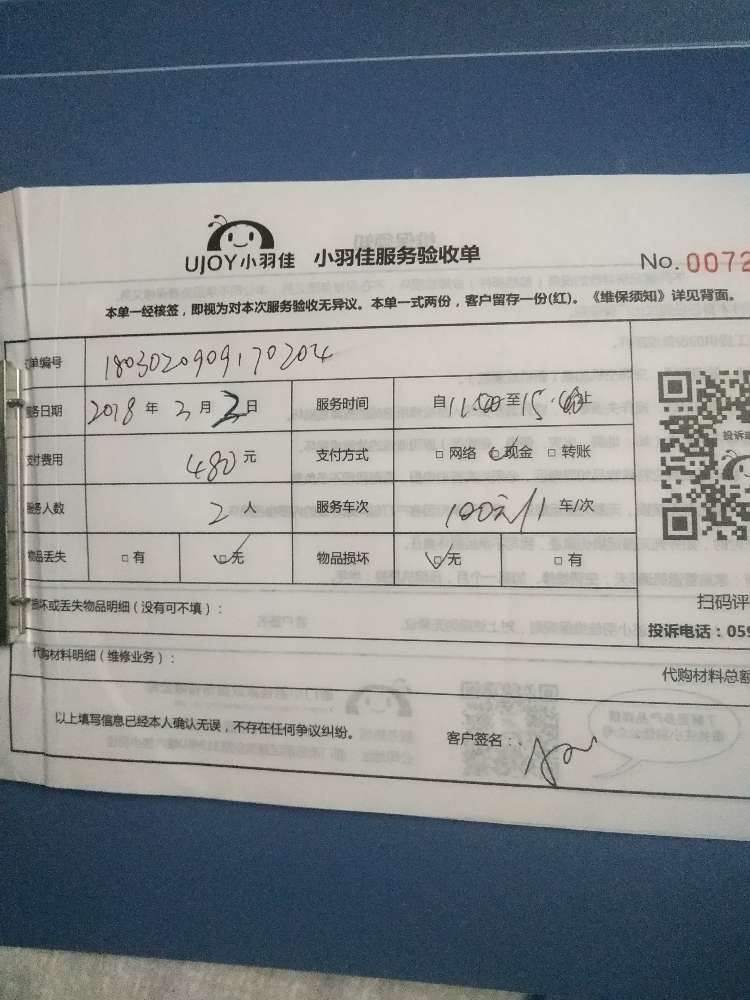 UJOY小羽佳 小羽佳服务验收单
No. 0072
本单一经核签，即视为对本次服务验收无异议。本单一式两份，客户留存一份(红)。《维保须知》详见背面。
单编号 1803020909170204
务日期 2018年3月2日 服务时间 自11:00至15:00止
支付费用 480元 支付方式 □网络 □现金 □转账
服务人数 2人 服务车次 100元/1车/次
物品丢失 □有 □无 物品损坏 □无 □有
损坏或丢失物品明细（没有可不填）：
代购材料明细（维修业务）：
代购材料总额
投诉
扫码评
投诉电话：059
以上填写信息已经本人确认无误，不存在任何争议纠纷。
客户签名：